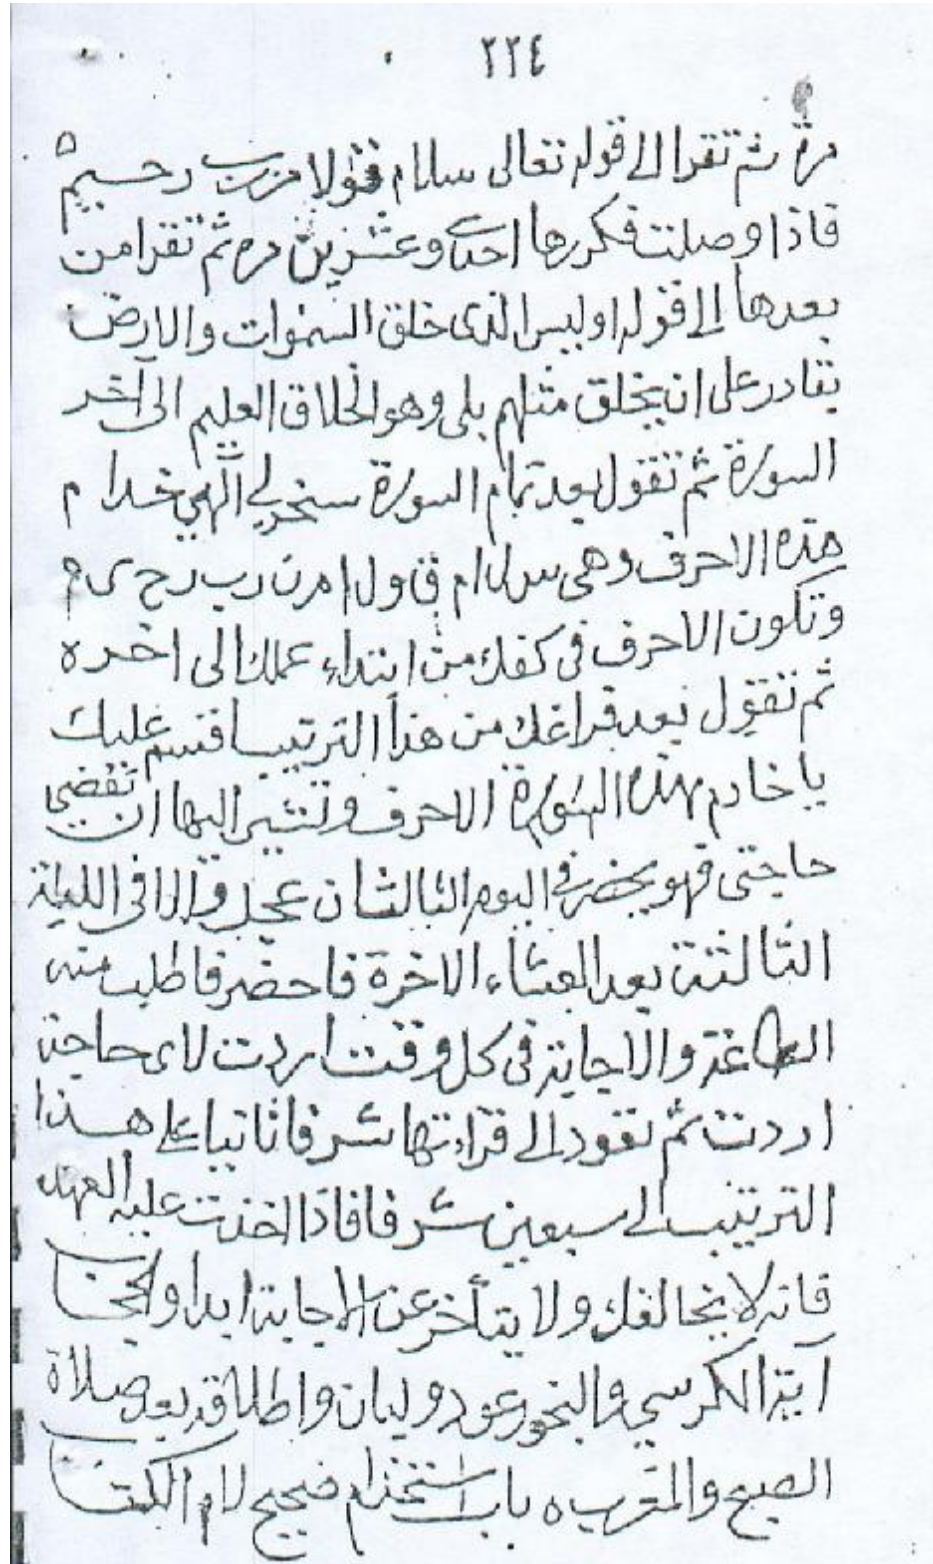 ٢٢٤
مرة ثم تقرا الى قوله تعالى سلام قولا من رب رحيم ه
فاذا وصلت فكررها احدى وعشرين مره ثم تقرا من
بعدها الى قوله اوليس الذى خلق السموات والارض
بقادر على ان يخلق مثلهم بلى وهو الخلاق العليم الى آخر
السورة ثم تقول بعد تمام السورة سخر لى الهي خدام
هذه الاحرف وهى س ل ا م ق و ل ا م ن ر ب ر ح ى م
وتكون الاحرف فى كفك من ابتداء عملك الى اخره
ثم تقول بعد فراغك من هذا الترتيب اقسم عليك
يا خادم بهذه السورة الاحرف وتشير اليها ان تقضى
حاجتى فهو يحضر فى اليوم الثالث ان عجل والا فى الليلة
الثالثة بعد العشاء الاخرة فاحضر فاطلب منه
الطاعة والاجابة فى كل وقت اردت لاى حاجة
اردت ثم تعود الى قراءتها شرفا ثانيا على هذا
الترتيب الى سبعين شرفا فاذا اخذت عليه العهد
فانه لا يخالفك ولا يتأخر عن الاجابة ابدا والحجاب
آية الكرسي والبخور عود ولبان واطلاقه بعد صلاة
الصبح والمغرب ه باب استخدام صحيح لام الكتاب